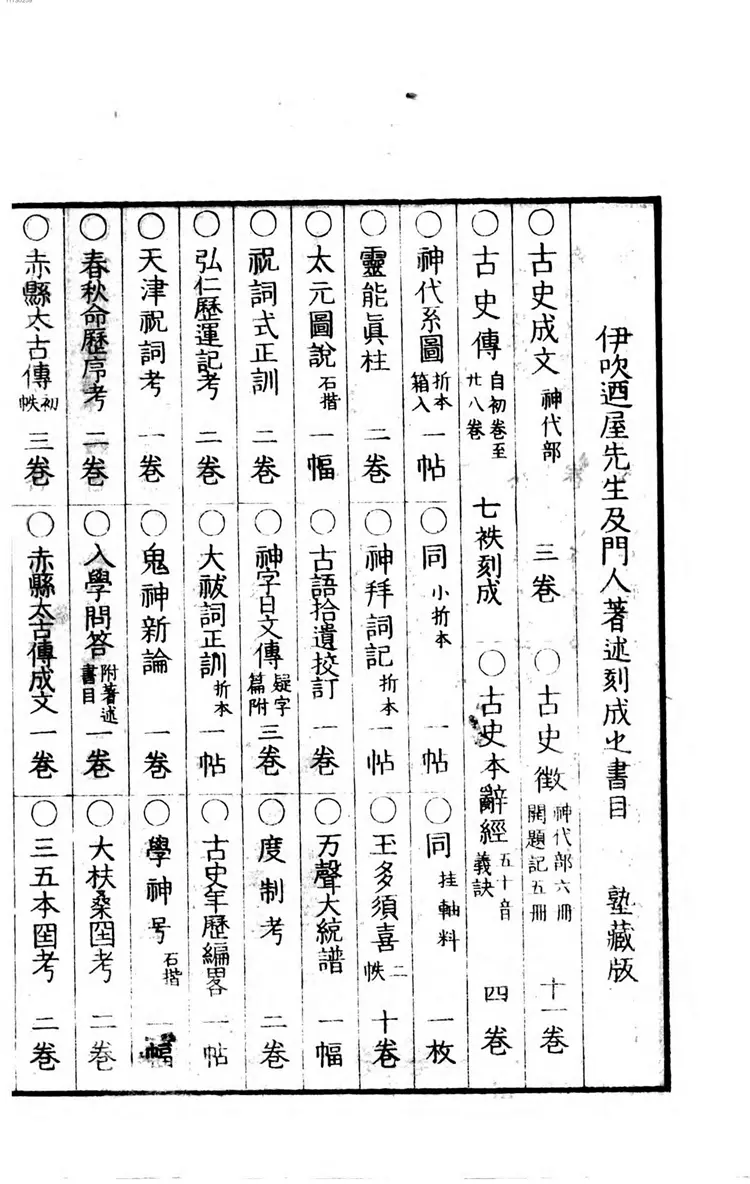 伊吹迺屋先生及門人著述刻成之書目　塾藏版
○古史成文 神代部 三卷 ○古史徵 神代部六冊 開題記五冊 十一卷
○古史傳 自初卷至廿八卷 七袟刻成 ○古史本辭經 五十音義訣 四卷
○神代系圖 折本箱入 一帖 ○同 小折本 一帖 ○同 挂軸料 一枚
○靈能眞柱 二卷 ○神拜詞記 折本 一帖 ○玉多須喜 二帙 十卷
○太元圖說 石摺 一幅 ○古語拾遺挍訂 一卷 ○万聲大統譜 一幅
○祝詞式正訓 二卷 ○神字日文傳 疑字篇附 三卷 ○度制考 二卷
○弘仁歷運記考 二卷 ○大祓詞正訓 折本 一帖 ○古史年歷編畧 一帖
○天津祝詞考 一卷 ○鬼神新論 一卷 ○學神号 石摺 一幅
○春秋命歷序考 二卷 ○入學問答 附著述書目 一卷 ○大扶桑国考 二卷
○赤縣太古傳 初帙 三卷 ○赤縣太古傳成文 一卷 ○三五本国考 二卷